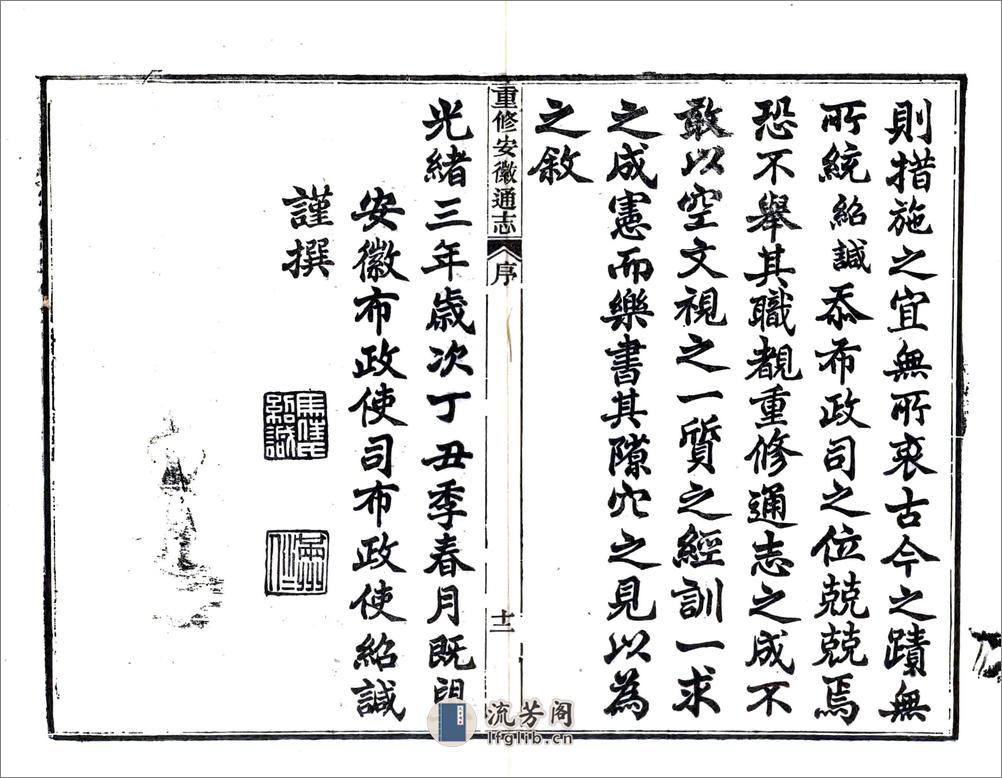 則措施之宜無所衷古今之蹟無
所統紹諴忝布政司之位兢兢焉
恐不舉其職覩重修通志之成不
敢以空文視之一質之經訓一求
之成憲而樂書其隙穴之見以為
之敘
重修安徽通志
序
十二
光緒三年歲次丁丑季春月既望
安徽布政使司布政使紹諴
謹撰
流芳阁
lfglib.cn